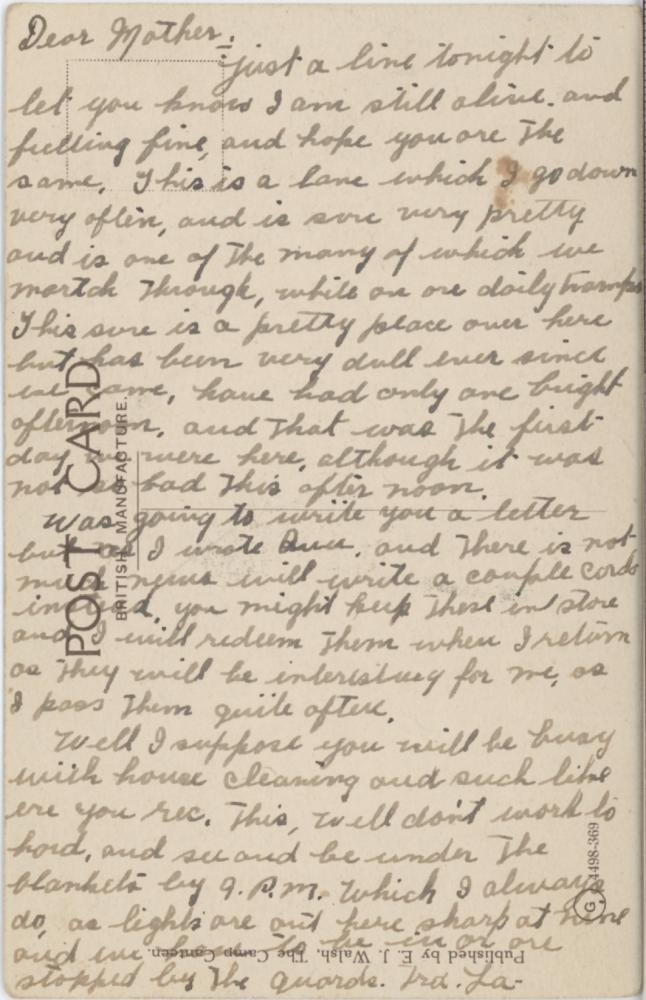 Dear Mother.
Just a line tonight to
let you know I am still alive. and
feelling fine, and hope you are the
same. This is a lane which I go down
very often, and is sure very pretty
and is one of the many of which we
martch through, while on ore daily tramps
This sure is a pretty place over here
but has been very dull ever since
we came, have had only one bright
afternoon, and that was the first
day we were here, although it was
not so bad this after noon.
Was going to write you a letter
but as I wrote and there is not
much news will write a couple cords
instead, you might keep these in store
and I will redeem them when I return
as they will be interesting for me, as
I pass them quite often.
Well I suppose you will be busy
with house cleaning and such like
ere you rec. this, well don't work to
hard, and see and be under the
blankets by 9. P.M. which I always
do, as lights are out here sharp at nine
and we have to be in or are
stopped by the guards.
POST CARD
BRITISH MANUFACTURE.
G. 4498-369
Published by E. J. Walsh, The Camp Canteen.